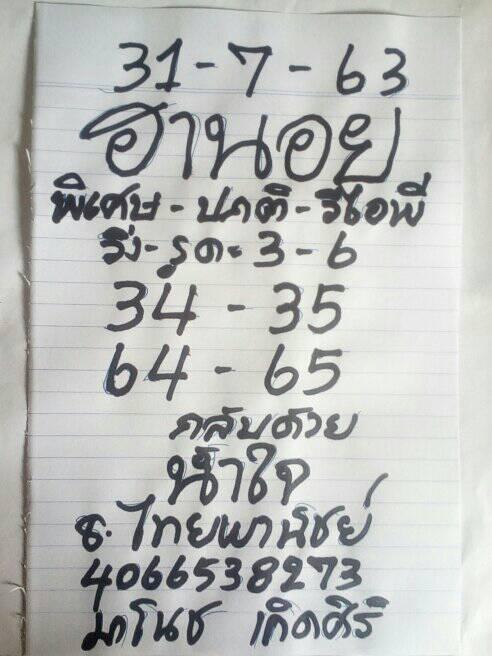 31-7-63
ฮานอย
พิเศษ-ปกติ-วีไอพี
วิ่ง-รูด=3-6
34-35
64-65
กลับด้วย
น้ำใจ
ธ.ไทยพานิชย์
4066538273
มาโนช เกิดศิริ